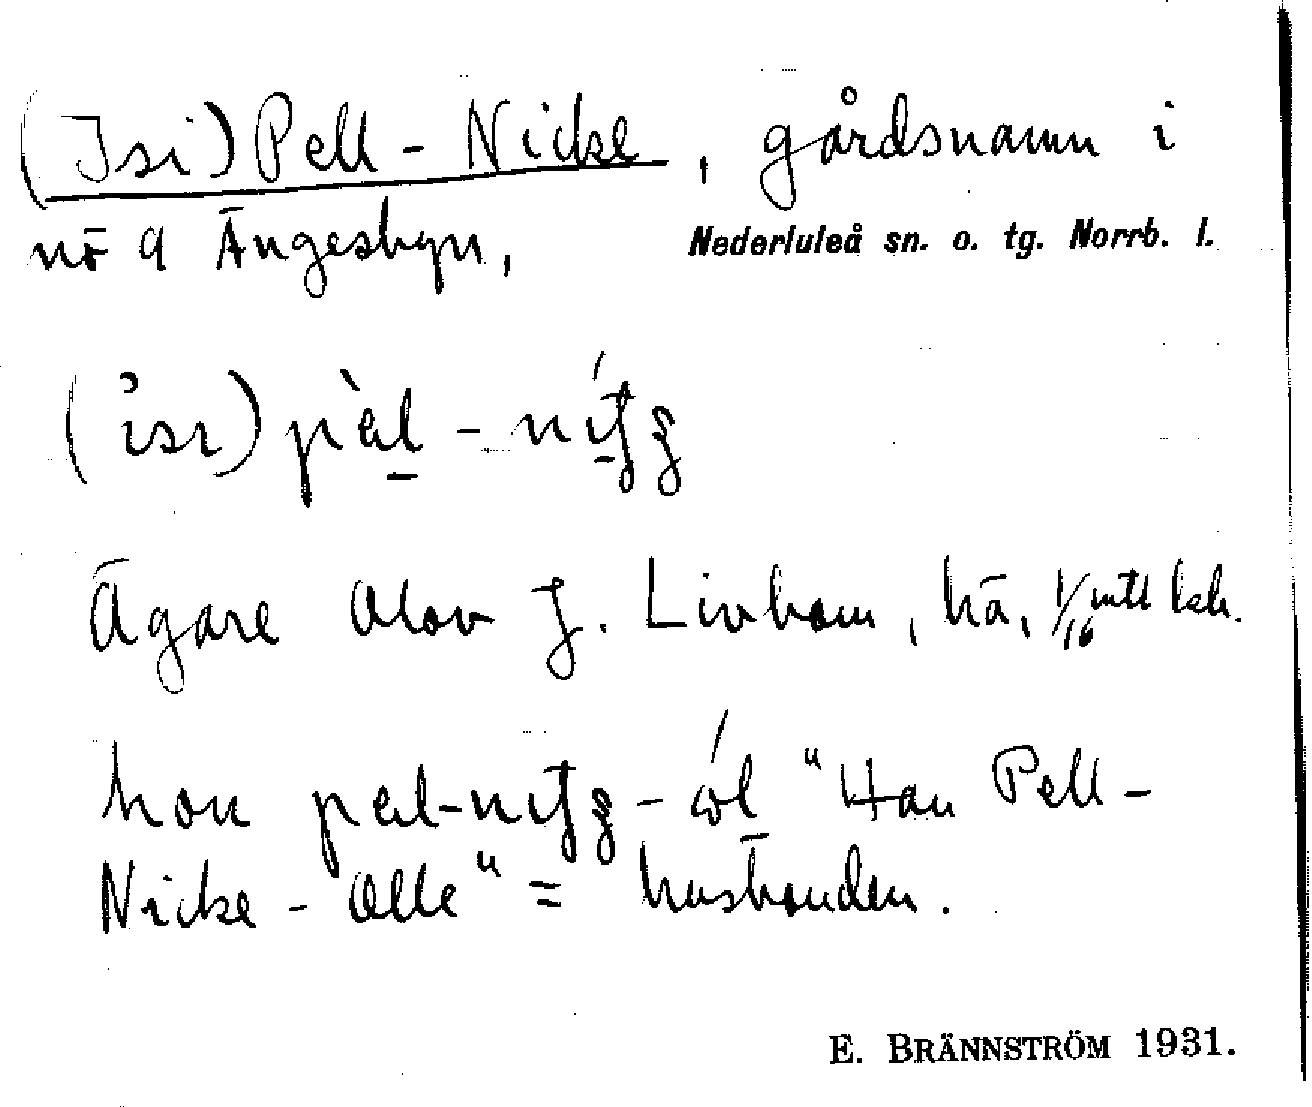 (Isi) Pell-Nicke, gårdsnamn i
nr 9 Ängesbyn, Nederluleå sn. o. tg. Norrb. l.
Ägare Olov J. Livbom, hä, 1/16 mtl
han "Han Pell-
Nicke-Olle" = husbonden.
E. BRÄNNSTRÖM 1931.